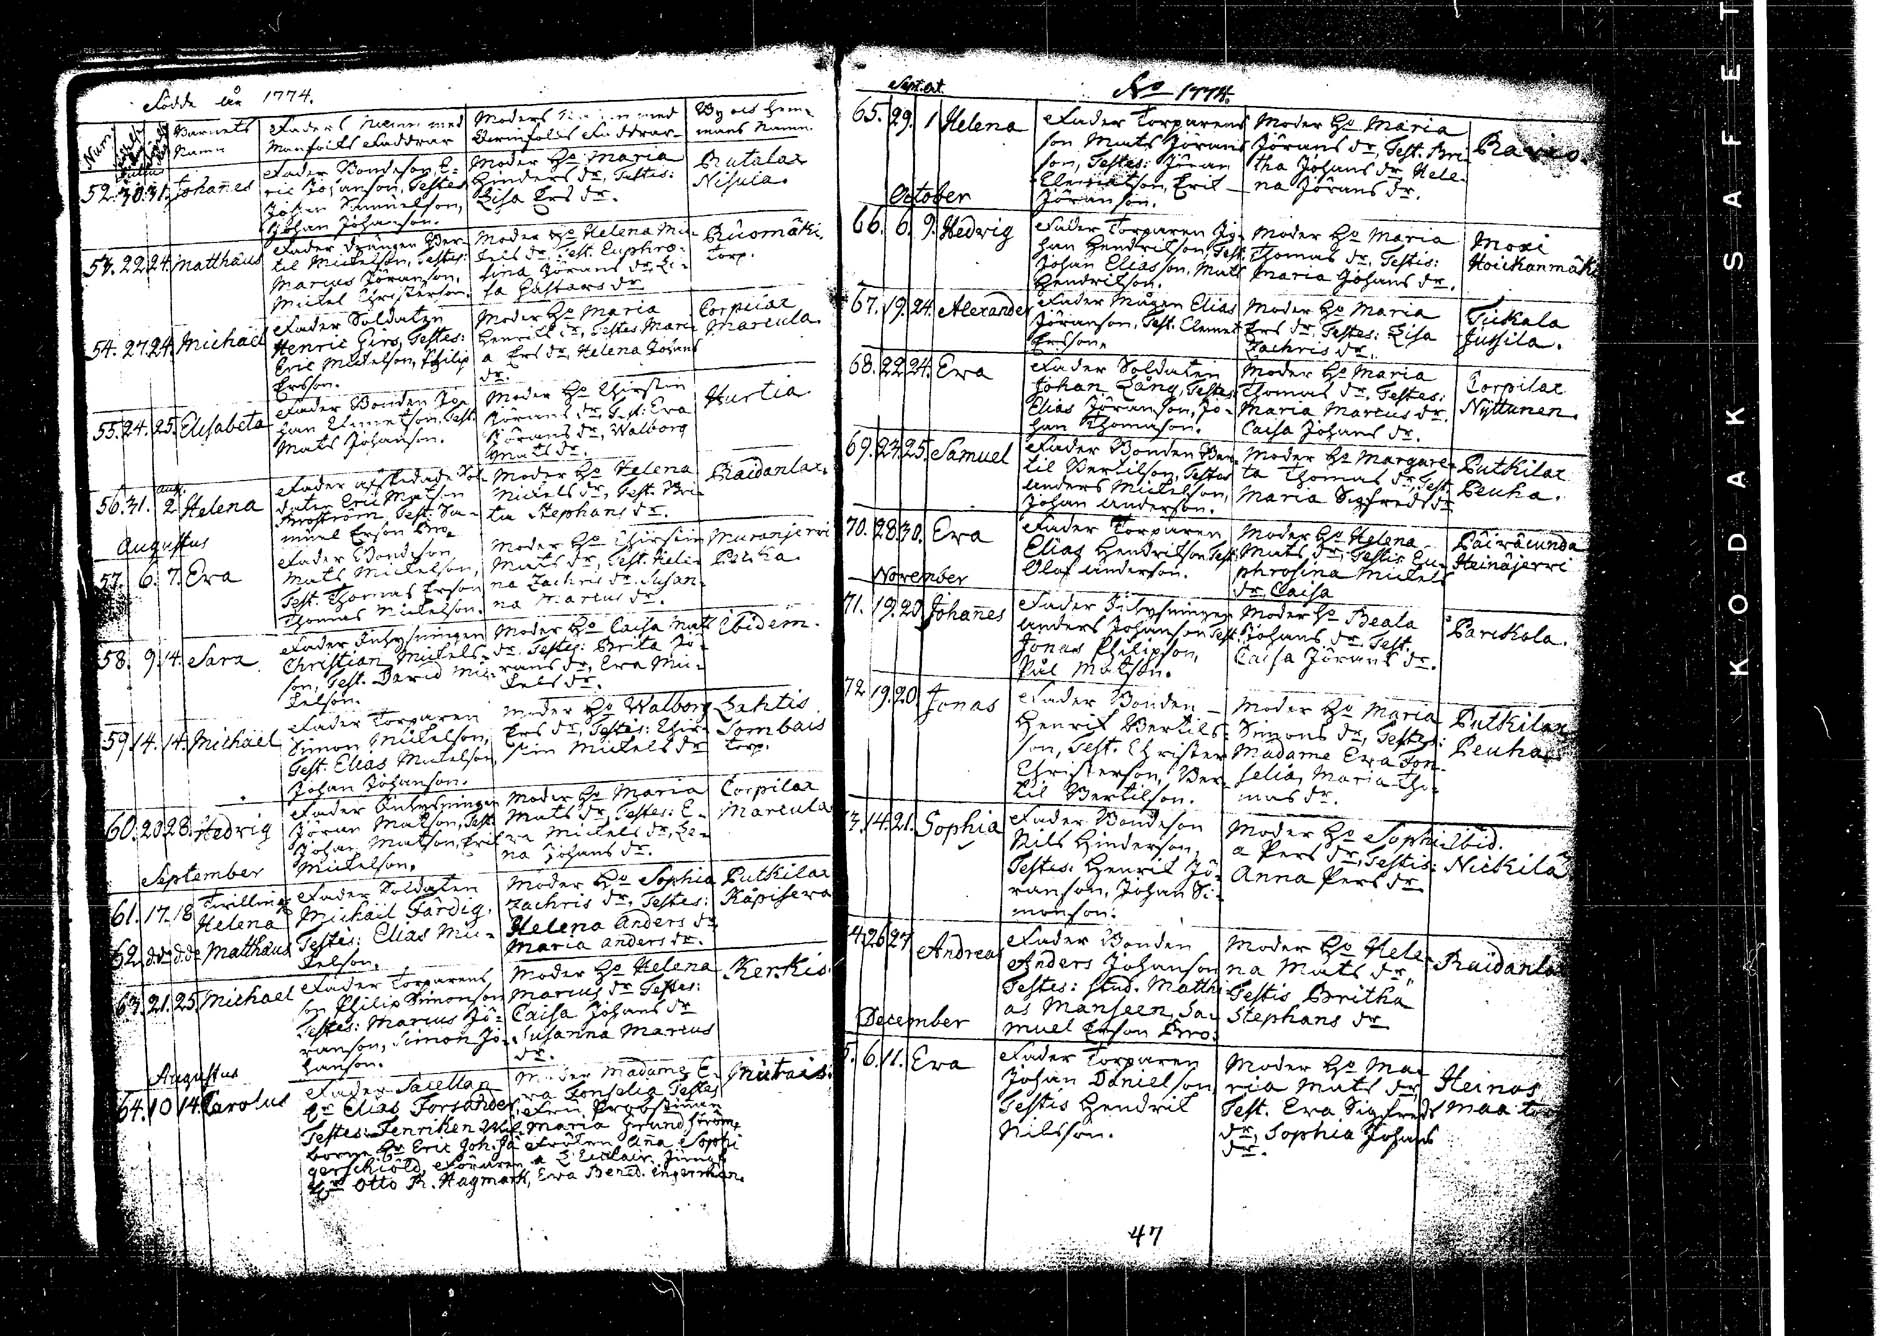 Födde år 1774.
Num
Barnets Namn
Faders Namn med Manfolks Faddrar
Moders Namn med Qvinfolks Faddrar
Byars hemmans Namn.
52. 30. 31. Johañes
Fader Bondeson, E-
ric Johanson, Testes
Johan Samuelson,
Johan Johanson.
Moder Ho Maria
Hinders dr, Testes:
Lisa Ers dr.
Rutalax
Nisula.
53. 22. 24. Matthäus
Fader drängen Ber-
til Mickelson, Testes:
Marcus Jöranson,
Mickel Christerson.
Moder Ho Helena Mi-
kels dr. Test. Euphro-
sina Jörans dr. Li-
sa Gustavs dr
Ruomäki
torp.
54. 27. 29. Michael
Fader Soldaten
Henric Girs, Testes:
Eric Mickelson, Philip
Ersson.
Moder Ho Maria
Henrik dr, Testes Mari-
a Ers dr, Helena Johans
dr.
Corpilax
Marcula.
55. 24. 25. Elisabeta
Fader Bonden Jo-
han Clemetson, Test:
Mats Johanson.
Moder Ho Chirstin
Jörans dr, Test: Eva
Jörans dr, Walborg
Mats dr.
Hurtia
56. 31. aug. 2 Helena
Fader afskedade Sol-
daten Eric Matson
Broström Test. Sa-
muel Erson Bro.
Moder Ho Helena
Mickels dr, Test. Bri-
ta Stephans dr.
Raidanlax.
Augustus
57. 6. 7. Eva
Fader Bondeson
Mats Mickelson,
Test. Thomas Erson
Thomas Mickelson.
Moder Ho Chirstin
Mats dr, Test. Hele-
na Zachris dr. Susan-
na Marcus dr.
Muranjerwi
58. 9. 14. Sara
Fader Inhysningen
Christian Mickels-
son, Test. David Mic-
kelson.
Moder Ho Caisa Mats
dr. Testes: Brita Jö-
rans dr, Eva Mic-
kels dr.
Ibidem.
59. 14. 14. Michael
Fader Torparen
Simon Mickelson,
Test. Elias Mickelson,
Johan Johanson.
Moder Ho Walborg
Ers dr, Testis: Chir-
stin Mickels dr
Lehtis
Sombais
torp.
60. 20. 28. Hedvig
Fader Inhysningen
Jöran Matson, Test
Johan Matson, Erik
Mickelson.
Moder Ho Maria
Mats dr, Testes: E-
va Mickels dr, Le-
na Johans dr.
Corpilax
Marcula
September
61. 17. 18. Twillings
Helena
62. do do do Matthäus
Fader Soldaten
Michael Färdig,
Testis: Elias Mic-
kelson.
Moder Ho Sophia
Zachris dr, Testes:
Helena Anders dr
Maria Anders dr.
Putkilax
Käpiserwa
63. 21. 25. Michael
Fader Torparens
son Philip Simonson
Testes: Marcus Jö-
ranson, Simon Jo-
hanson.
Moder Ho Helena
Marcus dr Testes:
Caisa Johans dr
Susanna Marcus
dr.
Kerkis
Augustus
64. 10 14. Carolus
Fader Sacellan
Hr Elias Forsander
Testes: Fenriken Wäl-
borne Hr Eric Joh. Jä-
gerschiöld, Föraren
Hr Otto R. Hagmark,
Moder Madame E-
va Fonselia Testes
Fru Probstinnan
Maria Grundström
Fröken Aña Sophi
a L'Eclair, Jungf.
Ewa Bened. Ingerman.
Mutais.
No 1774.
Sept. oct.
65. 29. 1 Helena
Fader Torparens
son Mats Jörans
son, Testes: Jöran
Clemetson, Erik
Jöranson.
Moder Ho Maria
Jörans dr, Test. Bri-
tha Johans dr, Hele-
na Jörans dr.
Ravio.
October
66. 6. 9. Hedvig
Fader Torparen Jo-
han Hendrikson, Test.
Johan Eliasson, Mats
Hendrikson.
Moder Ho Maria
Thomas dr, Testis:
Maria Johans dr.
Moxi
Hoickanmäki
67. 19. 24. Alexander
Fader Mågen Elias
Jöranson, Test. Clemet
Ersson.
Moder Ho Maria
Ers dr, Testes: Lisa
Zachris dr.
Tickala
Jussila.
68. 22. 24. Eva
Fader Soldaten
Johan Lång, Testes
Elias Jöranson, Jo-
han Thomason.
Moder Ho Maria
Thomas dr, Testes:
Maria Marcus dr.
Caisa Johans dr.
Corpilax
Nyttunen.
69. 24. 25. Samuel
Fader Bonden Ber-
til Bertilson, Testes
Anders Mickelson,
Johan Anderson.
Moder Ho Margare-
ta Thomas dr, Test.
Maria Sigfreds dr
Putkilax
Peuha.
70. 28. 30. Eva
Fader Torparen
Elias Hendrikson Test.
Olof Anderson.
Moder Ho Helena
Mats dr, Testis Eu-
phrosina Mickels
dr, Caisa
Päiväcunda
Heinäjerwi
November
71. 19. 20. Johañes
Fader Inhysningen
Anders Johanson Test.
Jonas Philipson,
Pål Matson.
Moder Ho Beata
Johans dr, Test.
Caisa Jörans dr.
Parckola.
72. 19. 20. Jonas
Fader Bonden
Henrik Bertils-
son, Test. Christer
Christerson, Ber-
til Bertilson.
Moder Ho Maria
Simons dr, Testes:
Madame Eva Fon-
selia, Maria Tho-
mas dr.
Putkilax
Peuha
3. 14. 21. Sophia
Fader Bondeson
Nils Hinderson,
Testes: Henrik Jö-
ranson, Johan Si-
monson.
Moder Ho Sophi-
a Pers dr, Testis:
Anna Pers dr
Ibid.
Nickilä
4. 26 27 Andreas
Fader Bonden
Anders Johanson
Testes: Stud. Matthi-
as Manseen, Sa-
muel Erson Bro.
Moder Ho Hele-
na Mats dr
Testis Britha
Stephans dr
Raidanla
December
5. 6. 11. Eva
Fader Torparen
Johan Danielson
Testis Hendrik
Nilsson.
Moder Ho Ma-
ria Mats dr,
Test. Eva Sigfreds
dr, Sophia Johans
dr.
Heinos
maa to
47
KODAK SAFET